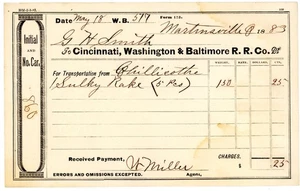 Date May 18 W.B. 519 Form 113. Martinsville O 1883
G H Smith
To Cincinnati, Washington & Baltimore R. R. Co. Dr
Initial and No. Car.
WEIGHT. RATE. DOLLARS. CTS.
For Transportation from Chillicothe
1 Sulky Rake (5 Pcs) 150 25
Received Payment, CHARGES, $ 25
W Miller
Agent,
ERRORS AND OMISSIONS EXCEPTED.